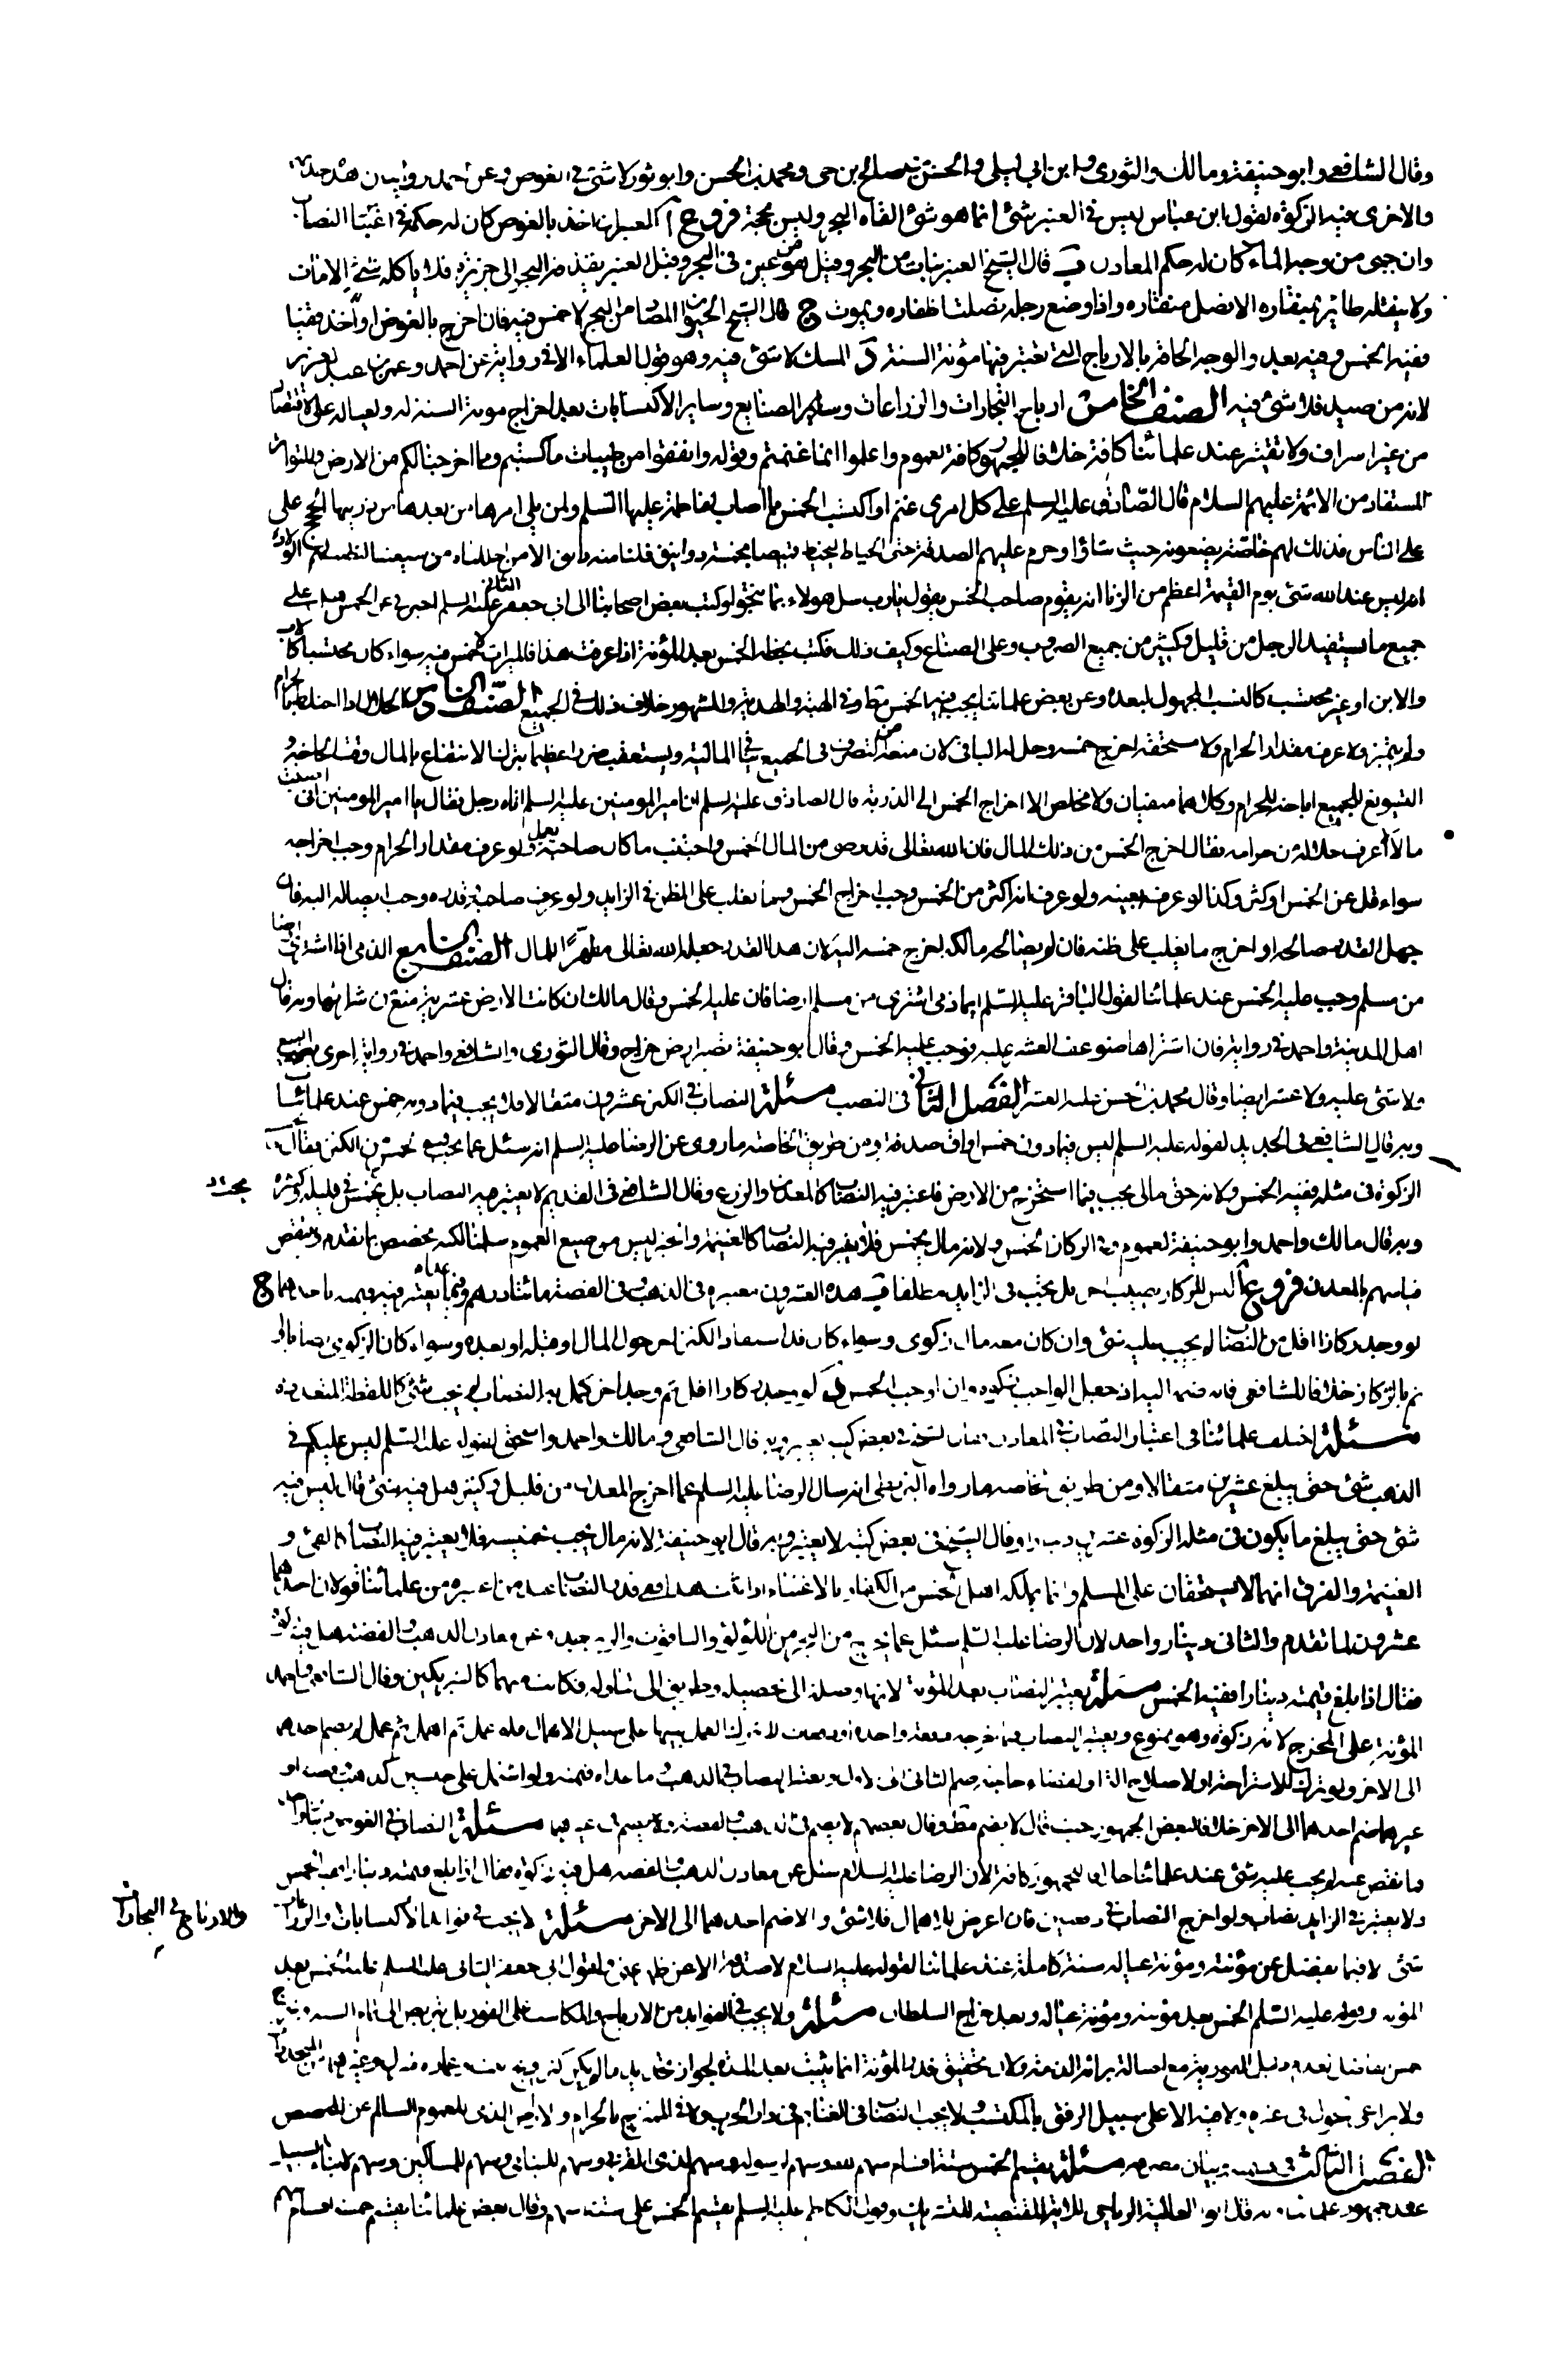 وقال الشافعي وابو حنيفة ومالك والثوري وابن ابي ليلى والحسن بن صالح بن حي ومحمد بن الحسن وابو ثور لا شئ في الغوص وعن احمد روايتان هذه احديهما
والاخرى فيه الزكوة لقول ابن عباس ليس في العنبر شئ انما هو شئ القاه البحر وليس بحجة فروع آ العنبر ان اخذ بالغوص كان له حكمه في اعتبار النصاب
وان جبى من وجه الماء كان له حكم المعادن ب قال الشيخ العنبر نبات من البحر وقيل هو من عين في البحر وقيل العنبر يقذفه البحر الى جزيرة فلا ياكله شئ الا مات
ولا ينقله طائر بمنقاره الا نصل منقاره واذا وضع رجله نصلت اظفاره ويموت ج قال الشيخ الحيوان المصاد من البحر لا خمس فيه فان اخرج بالغوص او اخذ قفيا
ففيه الخمس وفيه بعد والوجه الحاقه بالارباح التي تعتبر فيها مؤنة السنة د المسك لا شئ فيه وهو قول العلماء الا في رواية عن احمد وعمر بن عبد العزيز
لانه من صيد فلا شئ فيه الصنف الخامس ارباح التجارات والزراعات وساير الصنايع وساير الاكتسابات بعد اخراج مونة السنة له ولعياله على الاقتصاد
من غير اسراف ولا تقتير عند علمائنا كافة خلافا للجمهور كافة لعموم واعلموا انما غنمتم وقوله وانفقوا من طيبات ما كسبتم ومما اخرجنا لكم من الارض وللتواتر
المستفاد من الائمة عليهم السلام قال الصادق عليه السلم على كل امرئ غنم او اكتسب الخمس مما اصاب لفاطمة عليها السلم ولمن يلي امرها من بعدها من ذريتها الحجج على
على الناس فذلك لهم خاصة يضعونه حيث شاؤا وحرم عليهم الصدقة حتى الخياط ليخيط قميصا بخمسة دوانيق فلنا منه دانق الا من احللناه من شيعتنا لتطيب لهم الولادة
انه ليس عند الله شئ يوم القيمة اعظم من الزنا انه يقوم صاحب الخمس يقول يارب سل هولاء بما نكحوا وكتب بعض اصحابنا الى ابي جعفر الثاني عليه السلم اخبرني عن الخمس على
جميع ما يستفيد الرجل من قليل وكثير من جميع الضروب وعلى الصناع وكيف ذلك فكتب بخطه الخمس بعد المؤنة اذا عرفت هذا فالميراث لا خمس فيه سواء كان محتسبا كالاب
والابن او غير محتسب كالنسب المجهول لبعده وعن بعض علمائنا يجب فيه الخمس وفي الهبة والهدية والمشهور خلاف ذلك في الجميع الصنف السادس الحلال اذا اختلط بالحرام
ولم يتميز ولا عرف مقدار الحرام ولا مستحقه اخرج خمسه وحل له الباقي لان منعه من التصرف في الجميع ينافي المالية ويستعقب ضررا عظيما بترك الانتفاع بالمال وقت الحاجة و
التسويغ للجميع اباحة للحرام وكلاهما منفيان ولا مخلص الا اخراج الخمس الى الذرية قال الصادق عليه السلم ان امير المومنين عليه السلم اتاه رجل فقال يا امير المومنين اني اصبت
مالا لا اعرف حلاله من حرامه فقال اخرج الخمس من ذلك المال فان الله تعالى قد رضى من المال الخمس واجتنب ما كان صاحبه يعمل ولو عرف مقدار الحرام وجب اخراجه
سواء قل عن الخمس او كثر وكذا لو عرفه بعينه ولو عرف انه اكثر من الخمس وجب اخراج الخمس وما يغلب على الظن في الزايد ولو عرف صاحبه وقدره وجب ايصاله اليه فان
جهل القدر صالحه او اخرج ما يغلب على ظنه فان لم يصالحه مالكه اخرج خمسه اليه لان هذا القدر جعله الله تعالى مطهرا للمال الصنف السابع الذمي اذا اشترى ارضا
من مسلم وجب عليه الخمس عند علمائنا لقول الباقر عليه السلم ايما ذمي اشترى من مسلم ارضا فان عليه الخمس وقال مالك ان كانت الارض عشرية منع من شرائها وبه قال
اهل المدينة واحمد في رواية فان اشتراها ضوعف العشر عليه فوجب عليه الخمس وقال ابو حنيفة تصير ارض خراج وقال الثوري والشافعي واحمد في رواية اخرى يصح البيع
ولا شئ عليه ولا عشر ايضا وقال محمد بن الحسن عليه العشر الفصل الثاني في النصب مسئلة النصاب في الكنز عشرون مثقالا فلا يجب فيما دونه خمس عند علمائنا
وبه قال الشافعي في الجديد لقوله عليه السلم ليس فيما دون خمس اواق صدقة ومن طريق الخاصة ما روى عن الرضا عليه السلم انه سئل عما يجب فيه الخمس من الكنز فقال ما يجب
الزكوة في مثله ففيه الخمس ولانه حق مالي يجب فيما استخرج من الارض فاعتبر فيه النصاب كالمعدن والزرع وقال الشافعي في القديم لا يعتبر فيه النصاب بل يخمس قليله وكثيره
وبه قال مالك واحمد وابو حنيفة لعموم وفي الركاز الخمس ولانه مال يخمس فلا يعتبر فيه النصاب كالغنيمة والخبر ليس موضع العموم سلمنا لكنه مخصوص بما تقدم وينتقض
قياسهم بالمعدن فروع آ ليس للركاز نصيب اخر بل يجب في الزايد مطلقا ب هذه العشرون معتبرة في الذهب وفي الفضة مائتا درهم وفيما عداه يعتبر قيمته باحدهما ج
لو وجد ركازا اقل من النصاب لم يجب عليه شئ وان كان معه مال زكوي وسواء كان قد استفاد الكنز اخر حول المال او قبله او بعده وسواء كان الزكوي نصابا او
تم بالركاز خلافا للشافعي فانه ضمه اليه اذ جعل الواجب زكوة وان اوجب الخمس د لو وجد ركازا اقل ثم وجد اخر كمل به النصاب لم يجب شئ كاللقطة المتعددة
مسئلة اختلف علمائنا في اعتبار النصاب في المعادن قال الشيخ في بعض كتبه يعتبر وبه قال الشافعي ومالك واحمد واسحق لقوله عليه السلم ليس عليكم في
الذهب شئ حتى يبلغ عشرين مثقالا ومن طريق الخاصة ما رواه البزنطي انه سال الرضا عليه السلم عما اخرج المعدن من قليل وكثير هل فيه شئ قال ليس فيه
شئ حتى يبلغ ما يكون في مثله الزكوة عشرين دينارا وقال الشيخ في بعض كتبه لا يعتبر وبه قال ابو حنيفة لانه مال يجب تخميسه فلا يعتبر فيه النصاب كالفئ و
الغنيمة والفرق انهما لا يستحقان على المسلم وانما يملكه اهل الخمس من الكفار بالاغتنام اذا ثبت هذا ففي قدر النصاب عند من اعتبره من علمائنا قولان احدهما
عشرون لما تقدم والثاني دينار واحد لان الرضا عليه السلم سئل عما يخرج من البحر من اللؤلؤ والياقوت والزبرجد وعن معادن الذهب والفضة هل فيه زكوة
فقال اذا بلغ قيمته دينارا ففيه الخمس مسئلة يعتبر النصاب بعد المؤنة لانها وصلة الى تحصيله وطريق الى تناوله فكانت منهما كالشريكين وقال الشافعي واحمد
المؤنة على المخرج لانه زكوة وهو ممنوع ويعتبر النصاب فيما اخرجه دفعة واحدة او دفعات لا يترك العمل بينها على سبيل الاهمال فلو عمل ثم اهمل ثم عمل لم يضم احدهما
الى الاخر ولو ترك للاستراحة او لاصلاح الة او لقضاء حاجة ضم الثاني الى الاول ويعتبر النصاب في الذهب وما عداه قيمته ولو اشتمل على جنسين كذهب وفضة او
غيرهما ضم احدهما الى الاخر خلافا لبعض الجمهور حيث قال لا يضم مط وقال بعضهم لا يضم في الذهب والفضة ويضم في غيرهما مسئلة النصاب في الغوص دينار واحد
فما نقص عنه لم يجب عليه شئ عند علمائنا خلافا للجمهور كافة لان الرضا عليه السلام سئل عن معادن الذهب والفضة هل فيه زكوة فقال اذا بلغ قيمته دينارا ففيه الخمس
ولا يعتبر في الزايد نصاب ولو اخرج النصاب في دفعتين فان اعرض بالاهمال فلا شئ والا ضم احدهما الى الاخر مسئلة لا يجب في فوائد الاكتسابات والزراعات
والارباح في التجارات
شئ الا فيما يفضل عن مؤنته ومؤنة عياله سنة كاملة عند علمائنا لقوله عليه السلام لا صدقة الا عن ظهر غنى ولقول ابي جعفر الثاني عليه السلم عليه الخمس بعد
المؤنة وقوله عليه السلم الخمس بعد مؤنته ومؤنة عياله وبعد خراج السلطان مسئلة ولا يجب في الفوايد من الارباح والمكاسب على الفور بل يتربص الى تمام السنة ويخرج
ولا يراعى الحول في غيره ولا فيه الا على سبيل الرفق بالمكتسب ولا يجب النصاب في الغنايم في دار الحرب ولا في الممتزج بالحرام ولا ارض الذمي للعموم السالم عن المخصص
الفصل الثالث في قسمته وبيان مصرفه مسئلة يقسم الخمس ستة اقسام سهم لله وسهم لرسوله وسهم لذي القربى وسهم لليتامى وسهم للمساكين وسهم لابناء السبيل
عند جمهور علمائنا وبه قال ابو العالية الرياحي للاية المقتضية للقسمة وقول الكاظم عليه السلم يقسم الخمس على ستة سهام وقال بعض علمائنا يقسم خمسة اقسام